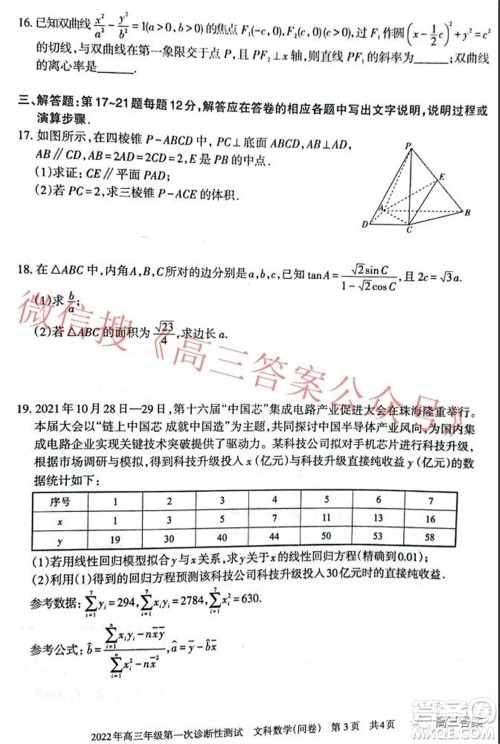 16. 已知双曲线 x²/a² - y²/b² = 1(a>0,b>0)的焦点 F₁(-c,0),F₂(c,0),过 F₁ 作圆 (x - 1/2 c)² + y² = c²
的切线,与双曲线在第一象限交于点 P,且 PF₂⊥x 轴,则直线 PF₁ 的斜率为______;双曲线
的离心率是______.
三、解答题:第17~21题每题12分,解答应在答卷的相应各题中写出文字说明,说明过程或
演算步骤.
17. 如图所示,在四棱锥 P-ABCD 中,PC⊥底面 ABCD,
AB∥CD,AB=2CD=2,E 是 PB 的中点.
(1)求证:CE∥平面 PAD;
(2)若 PC=2,求三棱锥 P-ACE 的体积.
P
E
A
B
D
C
18. 在△ABC 中,内角 A,B,C 所对的边分别是 a,b,c,已知 tanA = √2 sinC / (1-√2 cosC),且 2c=√3 a.
(1)求 b/a;
(2)若△ABC 的面积为 √23/4,求边长 a.
微信搜《高三答案公众号》
19. 2021年10月28日—29日,第十六届“中国芯”集成电路产业促进大会在珠海隆重举行.
本届大会以“链上中国芯 成就中国造”为主题,共同探讨中国半导体产业风向,为国内集
成电路企业实现关键技术突破提供了驱动.某科技公司拟对手机芯片进行科技升级,
根据市场调研与模拟,得到科技升级投入 x(亿元)与科技升级直接纯收益 y(亿元)的数
据统计如下:
序号 1 2 3 4 5 6 7
x 1 4 7 9 11 13 15
y 19 30 40 44 50 53 58
(1)若用线性回归模型拟合 y 与 x 关系,求出 y 与 x 的线性回归方程(精确到0.01);
(2)利用(1)的回归方程预测该科技公司科技升级投入30亿元时的直接纯收益.
参考数据:∑yᵢ=294,∑xᵢyᵢ=2784,∑xᵢ²=630.
参考公式:b̂ = (∑xᵢyᵢ - n x̄ȳ) / (∑xᵢ² - n x̄²), â = ȳ - b̂x̄
2022年高三年级第一次诊断性测试 文科数学(问卷) 第3页 共4页
高三答案